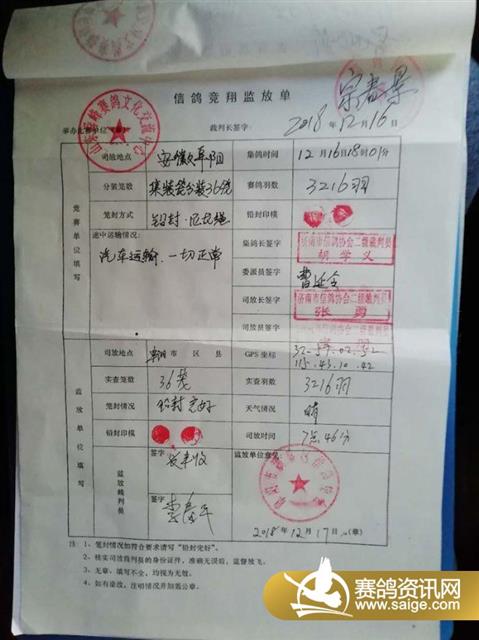 信鸽竞翔监放单
举办比赛单位（章）
裁判长签字：宗春景
2018年12月16日
司放地点 安徽阜阳 集鸽时间 12月16日18时01分
分装笼数 集装笼分装36笼 赛鸽羽数 3216羽
笼封方式 铅封 铅封印模
竞赛单位填写
途中运输情况：
汽车运输，一切正常
集鸽长签字 济南市信鸽协会二级裁判员 胡学义
委派员签字
司放长签字 济南市信鸽协会二级裁判员
司放员签字
司放地点 阜阳市 区 县 GPS坐标 32.57.02.52
115.43.10.42
实查笼数 36笼 实查羽数 3216羽
笼封情况 铅封完好 天气情况 晴
铅封印模 司放时间 7点46分
监放单位填写
监放裁判员
签字
签字
监放单位意见：
2018年12月17日（章）
注：1、笼封情况如符合要求请写“铅封完好”。
2、核实司放裁判员的身份证件，准确无误后，监督放飞。
3、无章、填写不全，均视为无效。
4、如有涂改，注明情况并加盖公章。
赛鸽资讯网
www.saige.com